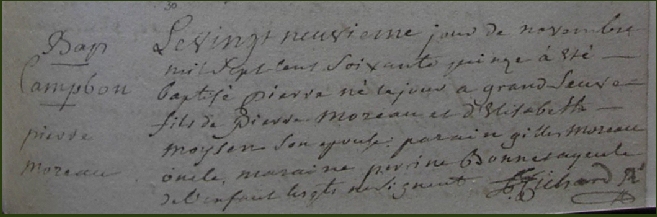 Bap
Campbon
pierre
moreau
Le vingt neuvieme jour de novembre
mil sept cent soixante quinze à été
baptisé pierre né le jour a grand
fils de pierre Moreau et d'Elisabeth
moysen son epouse; parain gilles moreau
oncle, maraine perrine Bonnet ayeule
de l'enfant lesquels ne signent Richard